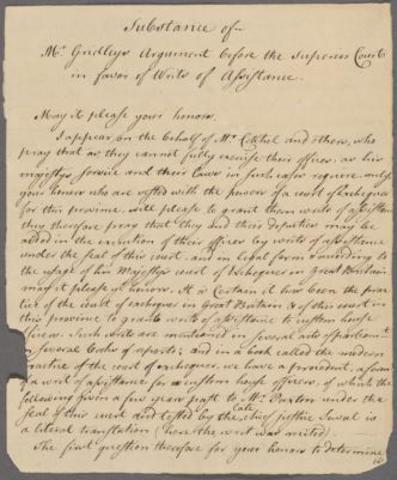 Substance of
Mr. Gridleys Argument before the Superior Court
in favor of Writs of Assistance.
May it please your honors.
I appear on the behalf of Mr. Cockel and others, who
pray that as they cannot fully exercise their offices, as his
majestys service and their Laws in such cases require, unless
your honors who are vested with the power of a court of exchequer
for this province will please to grant them writs of assistance
they therefore pray that they and their deputies may be
aided in the execution of their offices by writs of assistance
under the seal of this court, and in legal form & according to
the usage of his Majestys court of Exchequer in Great Britain
may it please yr honors. It is Certain it has been the prac-
tice of the court of exchequer in Great Britain & of this court in
this province to grant writs of assistance to custom house
officers. Such writs are mentioned in several acts of parliament
in several books of reports; and in a book called the modern
practice of the court of exchequer, we have a precedent, a form
of a writ of assistance for custom house officers, of which the
following given a few years past to Mr. Paxton under the
seal of this court and tested by the late chief justice Sewal is
a literal translation (here the writ was recited)
The first question therefore for your honors to determine
is